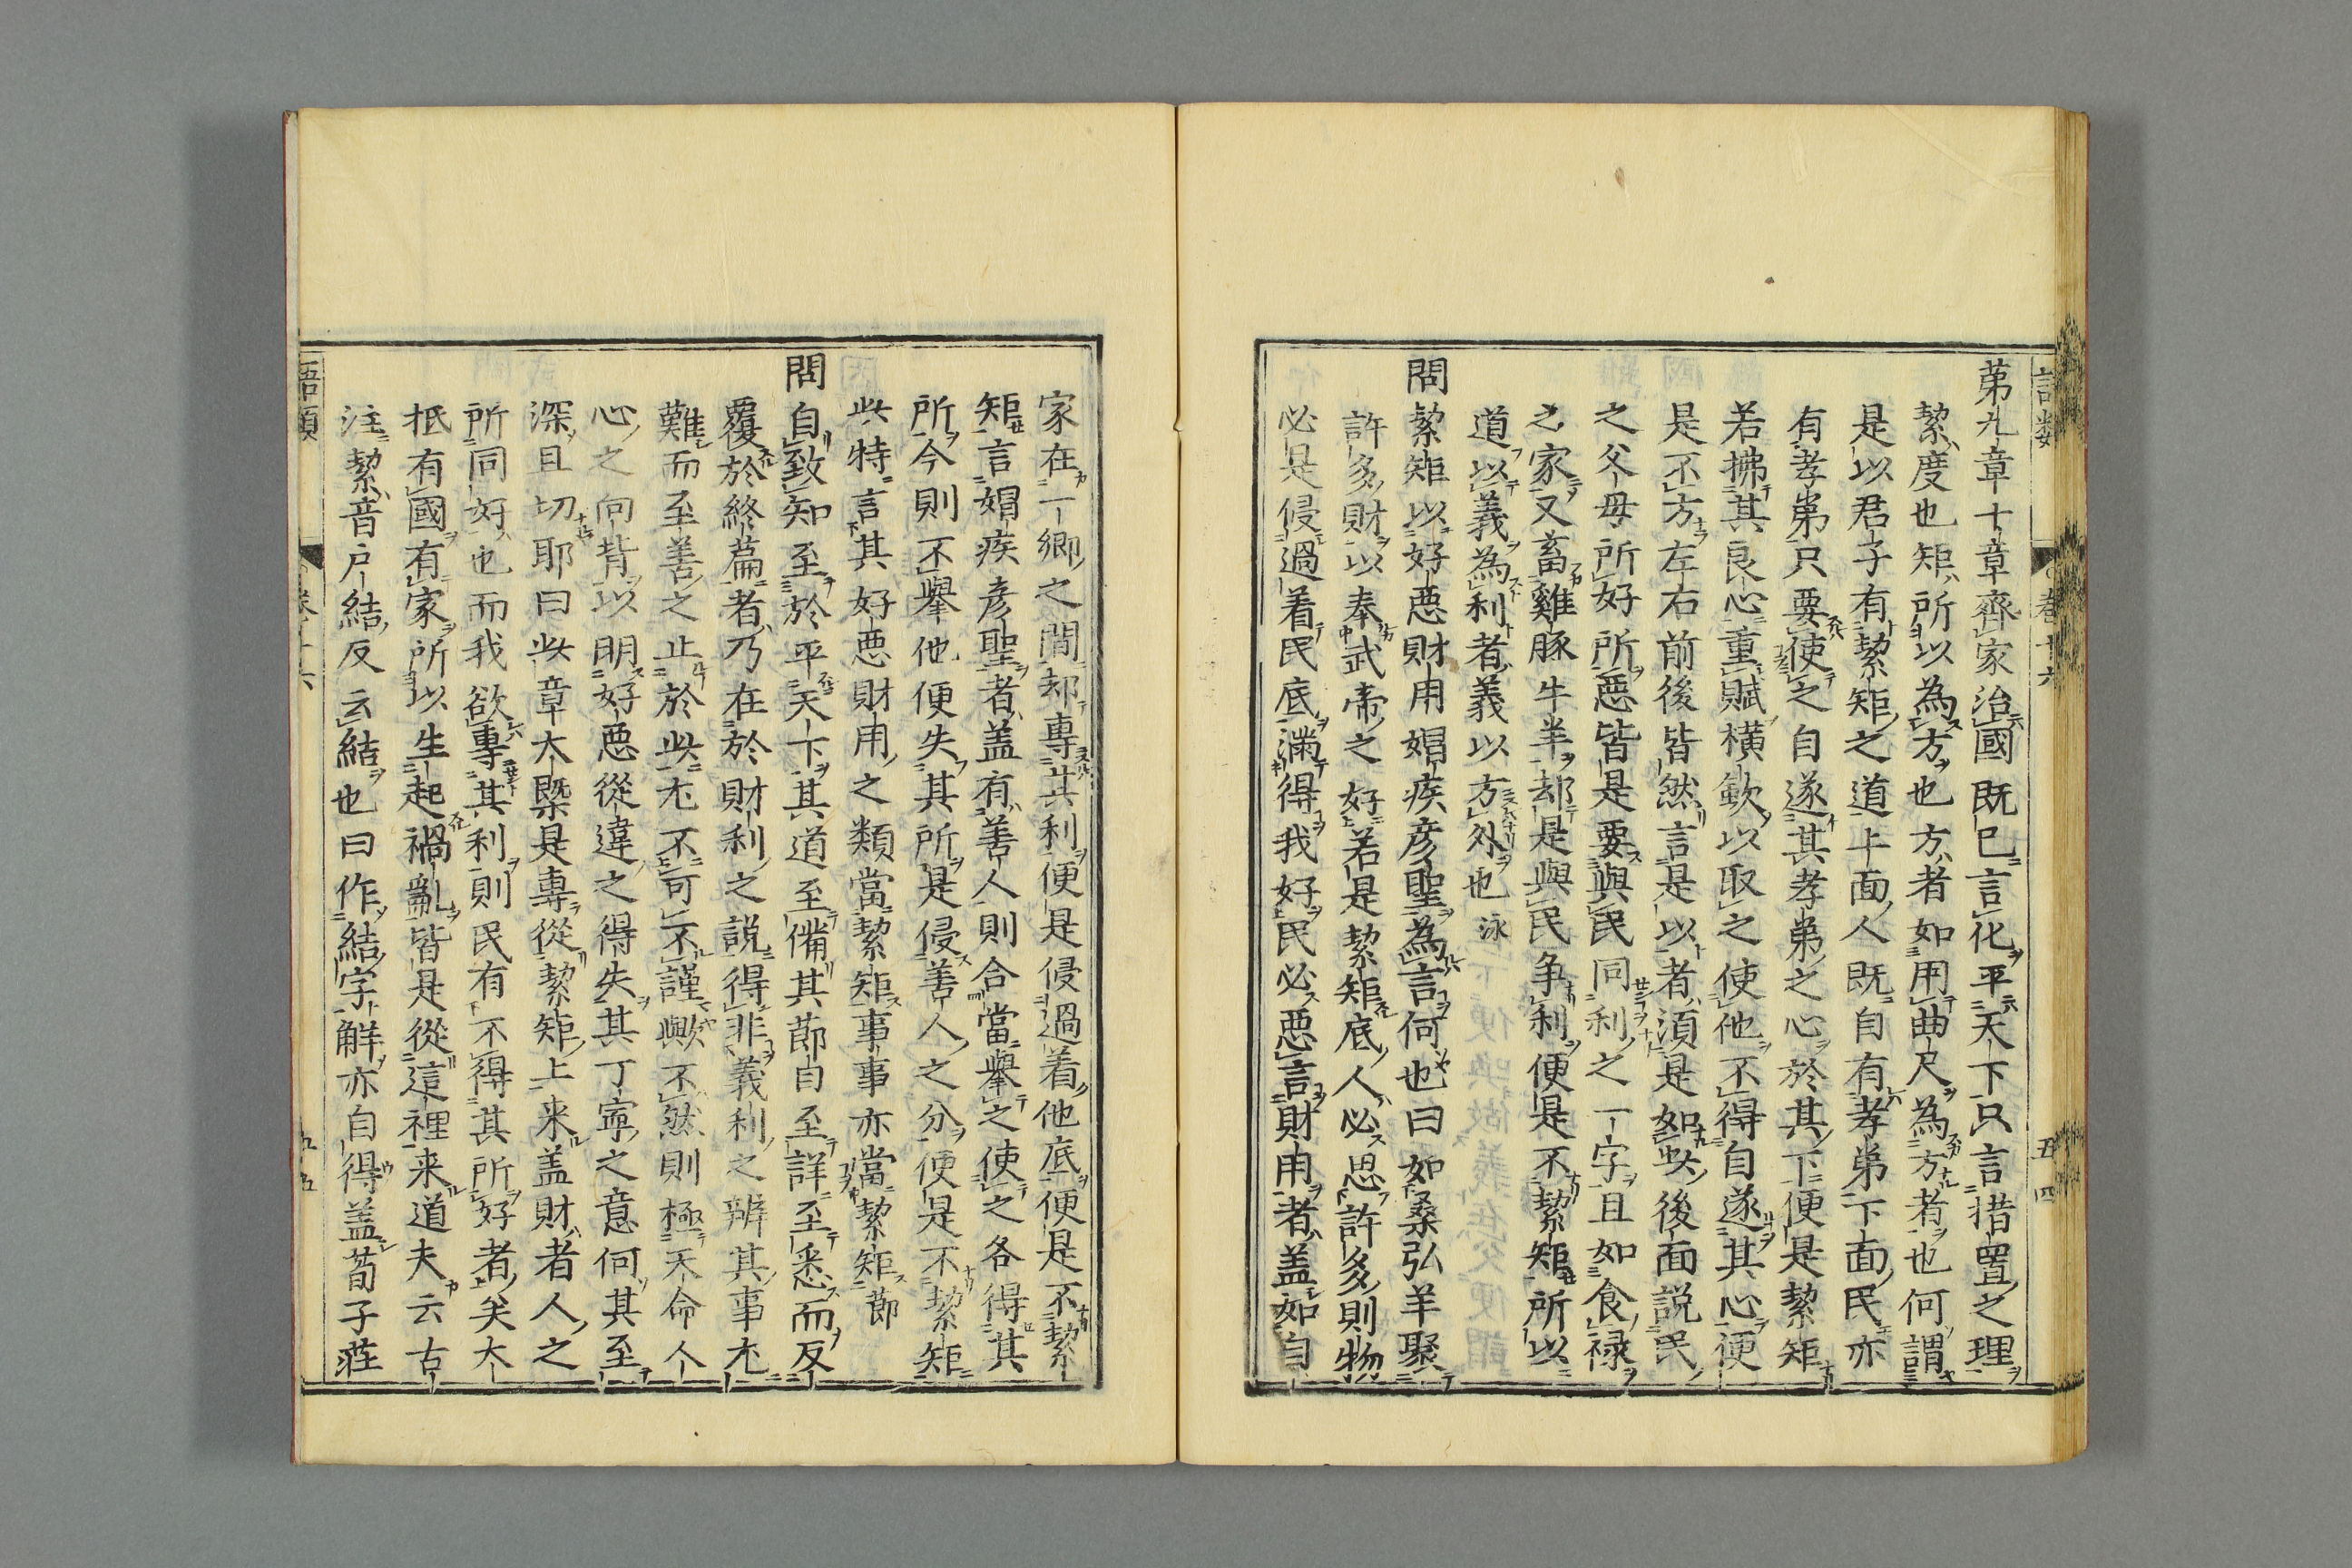 語類 卷十六 五四
第九章十章齊家治國既已言化平天下只言措置之理
絜度也矩所以為方也方者如用曲尺為方者也何謂
是以君子有絜矩之道上面人既自有孝弟下面民亦
有孝弟只要使之自遂其孝弟之心於其下便是絜矩
若拂其良心重賦橫歛以取之使他不得自遂其心便
是不方左右前後皆然言是以者須是如此後面説民
之父母所好所惡皆是要與民同利之一字且如食禄
之家又畜雞豚牛羊却是與民争利便是不絜矩所以
道以義為利者義以方外也 泳
問絜矩以好惡財用媢疾彦聖為言何也曰如桑弘羊聚
許多財以奉武帝之好若是絜矩底人必思許多則物
必是侵過着民底滿得我好民必惡言財用者盖如自
家在一鄉之間却專其利便是侵過着他底便是不絜
矩言媢疾彦聖者盖有善人則合當舉之使之各得其
所今則不舉他便失其所是侵善人之分便是不絜矩
此特言其好惡財用之類當絜矩事事亦當絜矩 節
問自致知至於平天下其道至備其節目至詳至悉而反
覆於終篇者乃在於財利之説得非義利之辨其事尤
難而至善之止於此尤不可不謹歟不然則極天命人
心之向背以明好惡從違之得失其丁寧之意何其至
深且切耶曰此章大槩是專從絜矩上来盖財者人之
所同好也而我欲專其利則民有不得其所好者矣大
抵有國有家所以生起禍亂皆是從這裡来道夫云古
注絜音户結反云結也曰作結字解亦自得盖荀子莊
語類 卷十六 五五